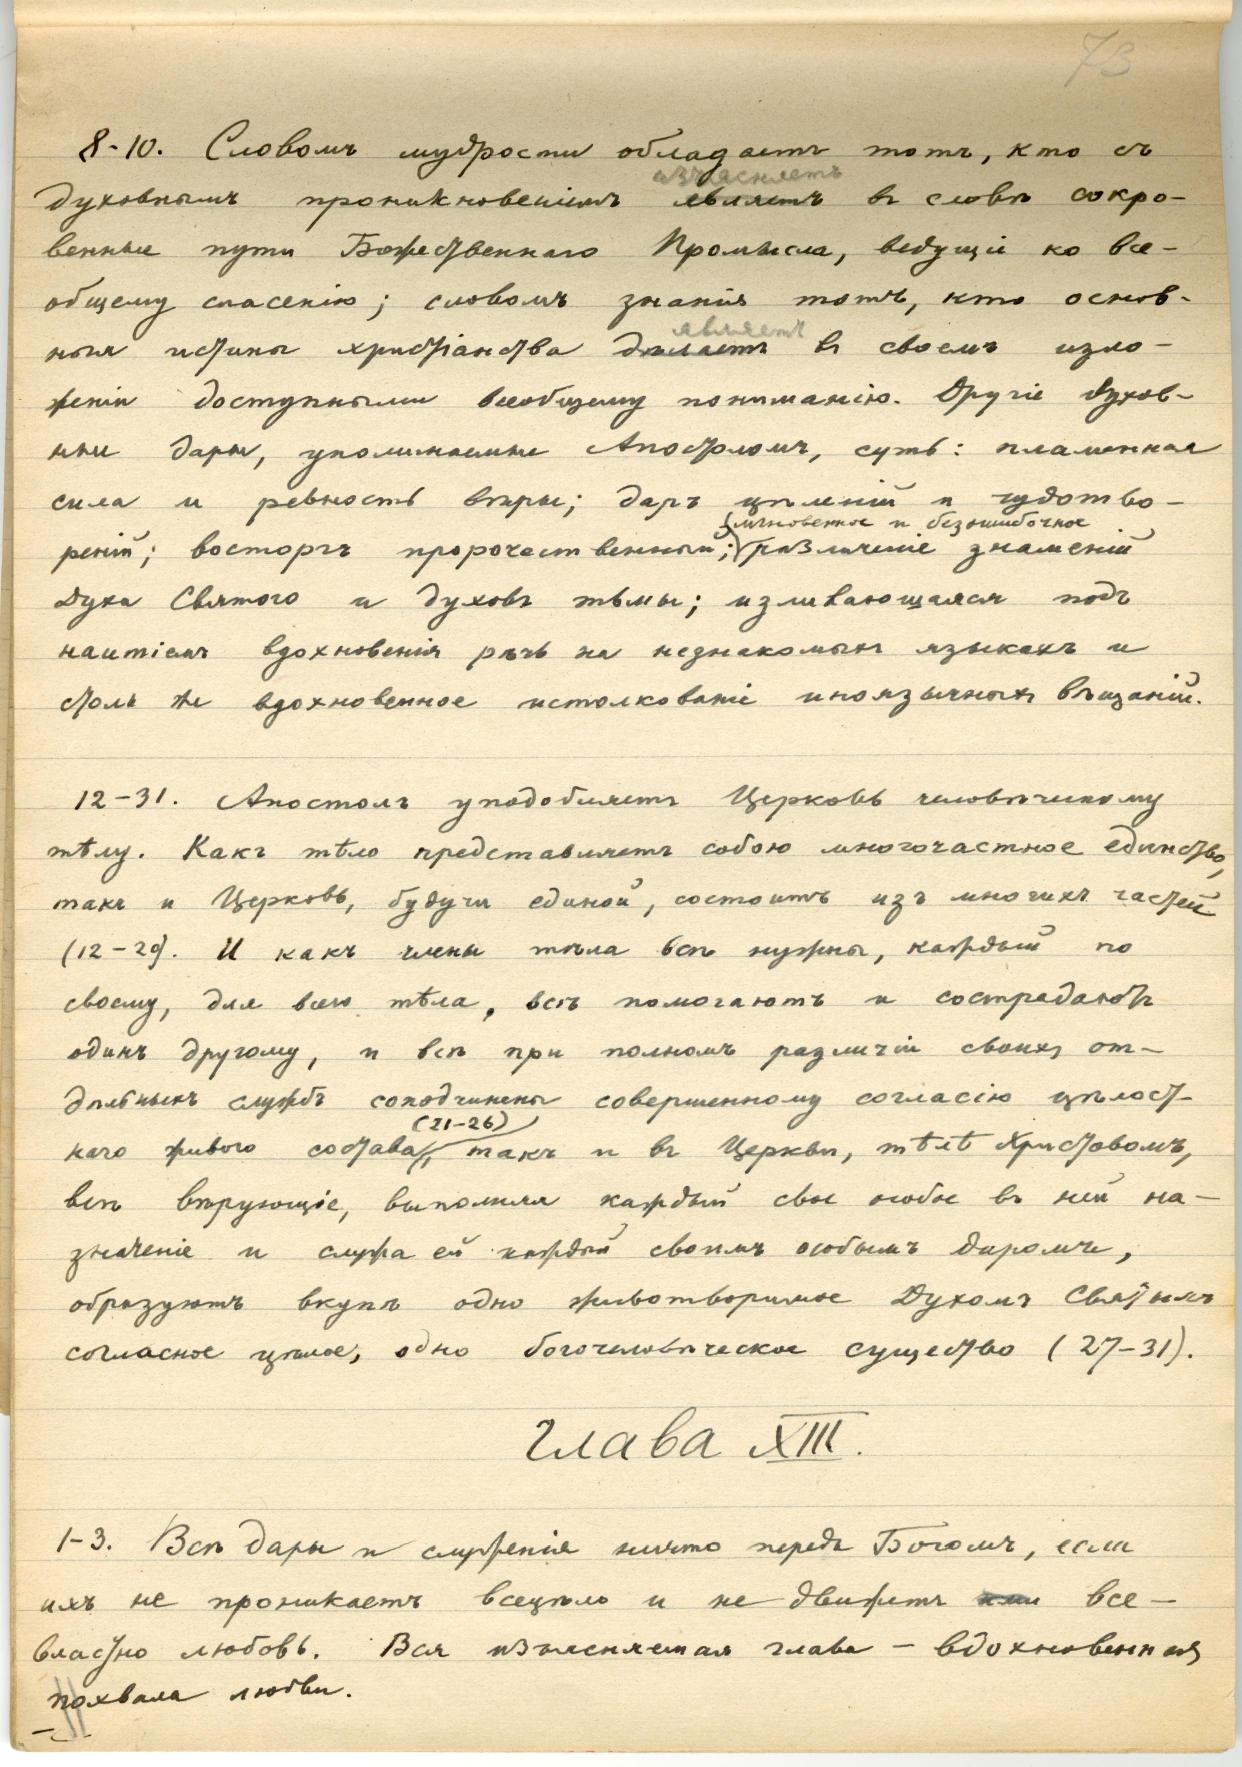 73
8-10. Словомъ мудрости обладаетъ тотъ, кто съ
изъясняетъ
духовнымъ проникновенiемъ являетъ въ словѣ сокро-
венные пути Божественнаго Промысла, ведущiе ко все-
общему спасенiю; словомъ знанiя тотъ, кто основ-
являетъ
ныя истины христiанства дѣлаетъ въ своемъ изло-
женiи доступными всеобщему пониманiю. Другiе духов-
ные дары, упоминаемые Апостоломъ, суть: пламенная
сила и ревность вѣры; даръ цѣленiй и чудотво-
мгновенное и безошибочное
ренiй; восторгъ пророчественный; различенiе знаменiй
Духа Святого и духовъ тьмы; изливающаяся подъ
наитiемъ вдохновенiя рѣчь на незнакомыхъ языкахъ и
столь же вдохновенное истолкованiе иноязычныхъ вѣщанiй.
12-31. Апостолъ уподобляетъ Церковь человѣческому
тѣлу. Какъ тѣло представляетъ собою многочастное единство,
такъ и Церковь, будучи единой, состоитъ изъ многихъ частей
(12-20). И какъ члены тѣла всѣ нужны, каждый по
своему, для всего тѣла, всѣ помогаютъ и сострадаютъ
одинъ другому, и всѣ при полномъ различiи своихъ от-
дѣльныхъ службъ соподчинены совершенному согласiю цѣлост-
(21-26)
наго живого состава, такъ и въ Церкви, тѣлѣ Христовомъ,
всѣ вѣрующiе, выполняя каждый свое особое въ ней на-
значенiе и служа ей каждый своимъ особымъ даромъ,
образуютъ вкупѣ одно животворимое Духомъ Святымъ
согласное цѣлое, одно богочеловѣческое существо (27-31).
Глава XIII.
1-3. Всѣ дары и служенiя ничто передъ Богомъ, если
ихъ не проникаетъ всецѣло и не движетъ все-
властно любовь. Вся изъясняемая глава - вдохновенная
похвала любви.